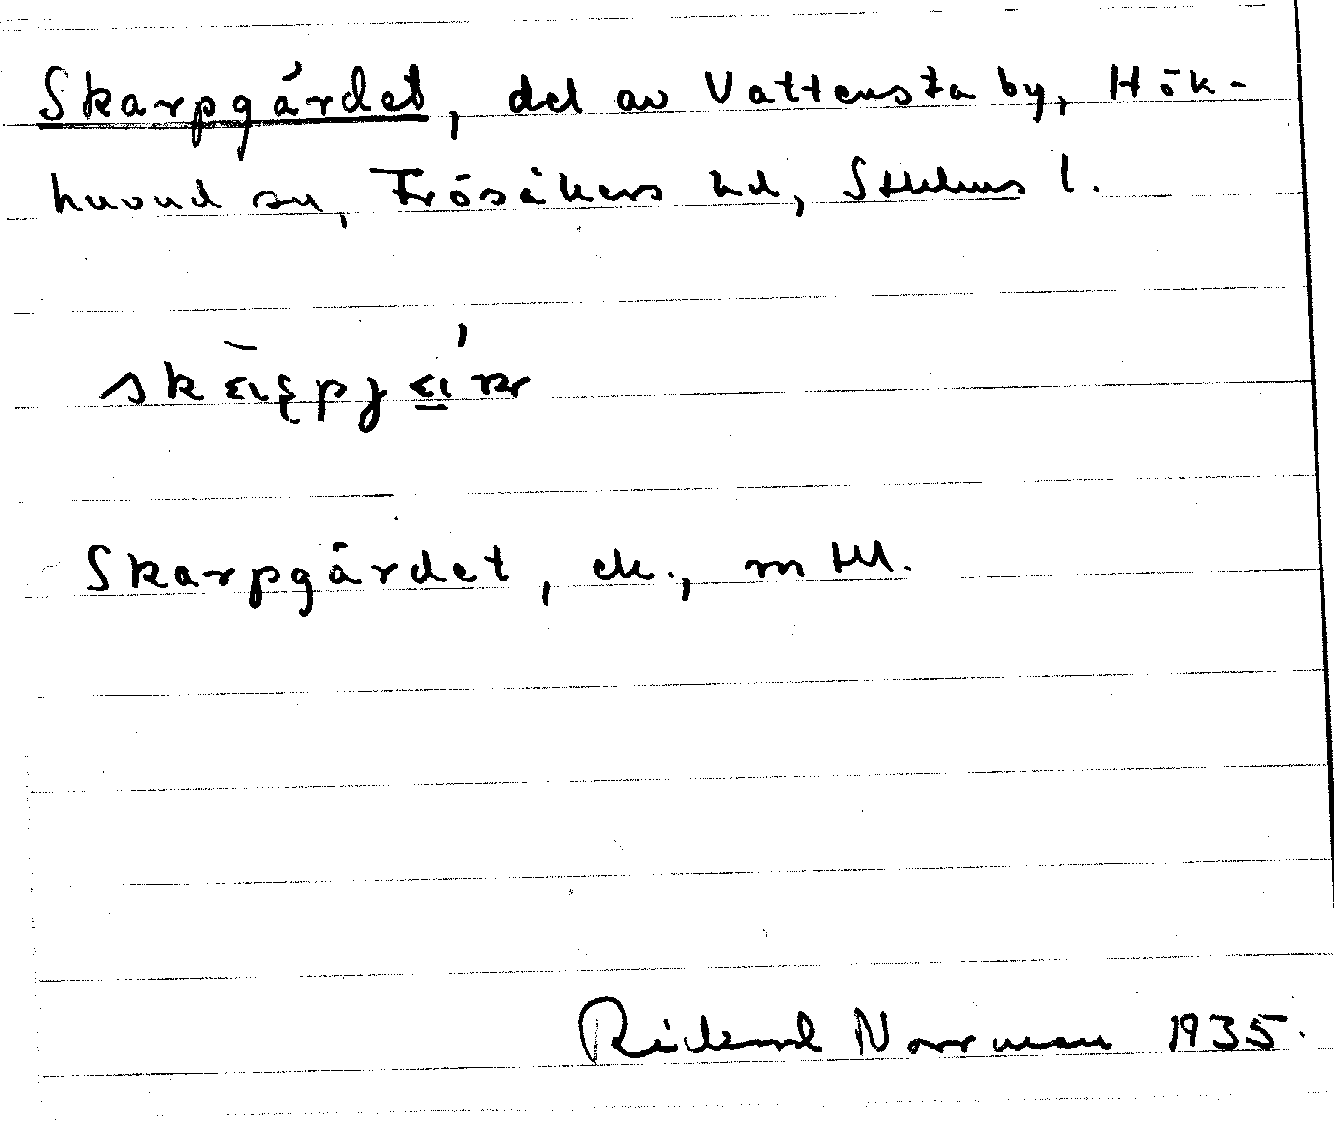 Skarpgärdet, del av Vattensta by, Hök-
huvud sn, Frösåkers hd, Sthlms l.
Skarpgärdet, ek., m Hll.
Rickard Norrman 1935.